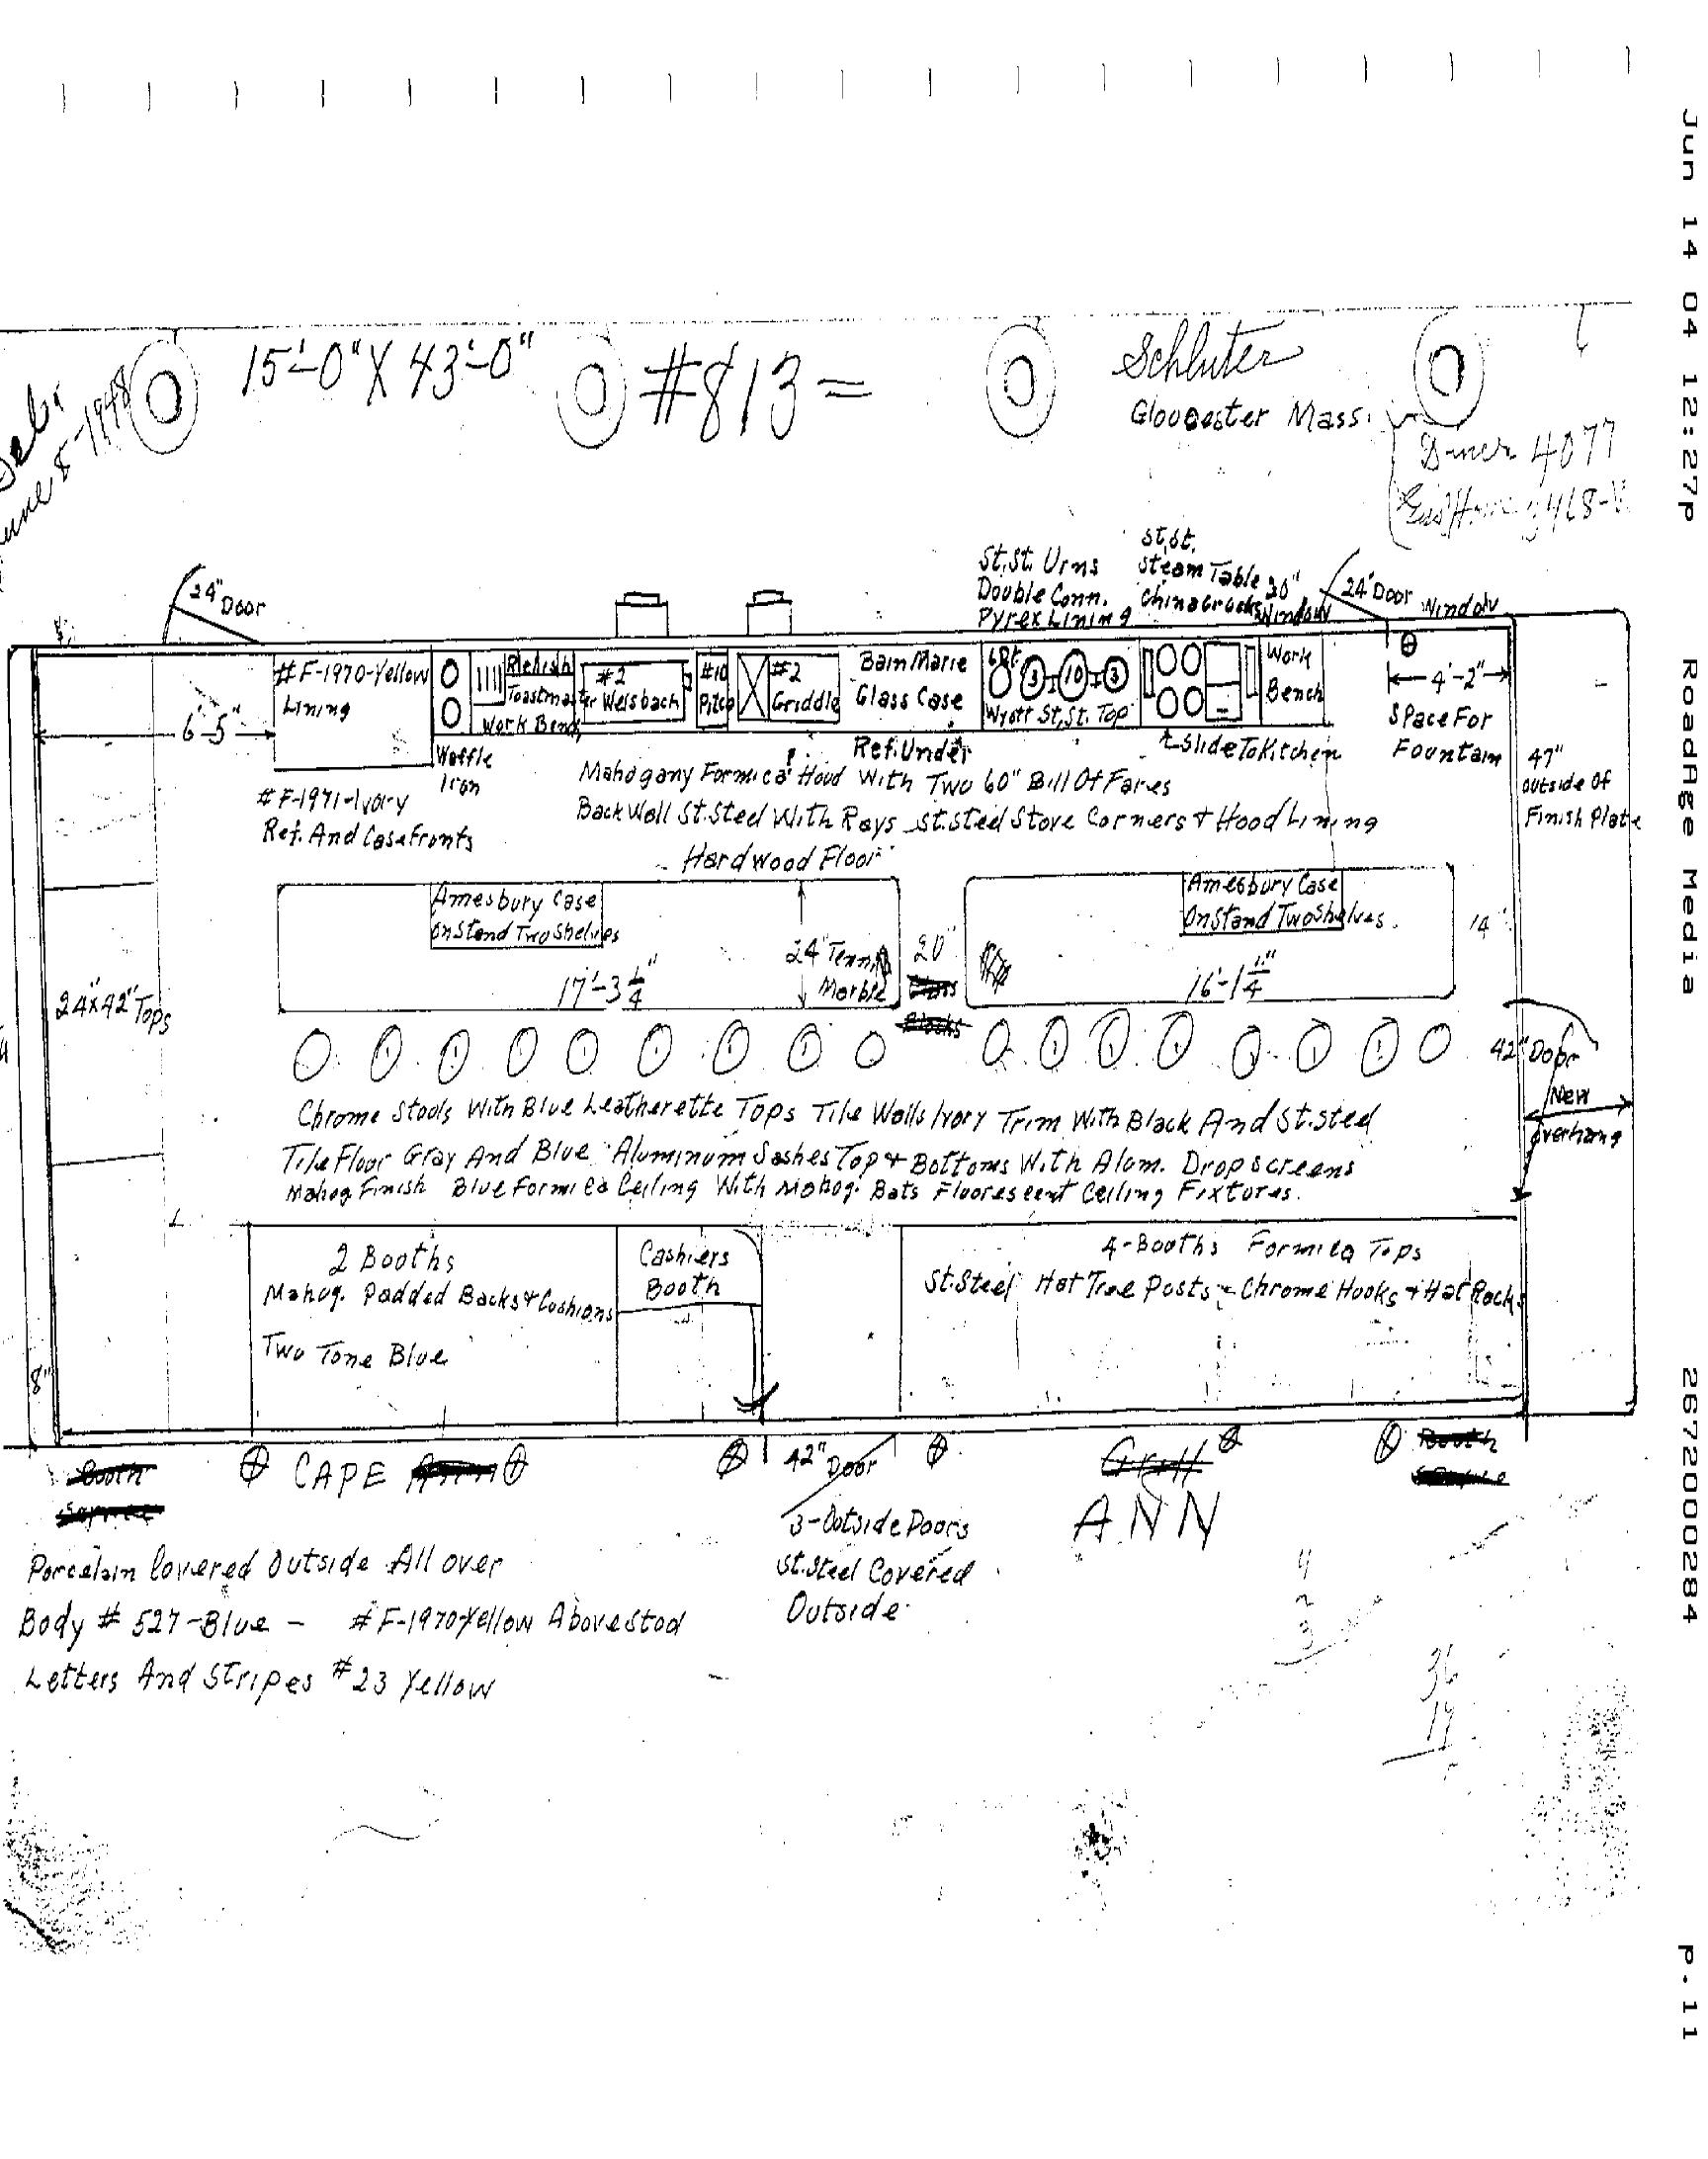 Jun 14 04 12:27p RoadAge Media 2672000284 p.11
15'-0" X 43'-0" #813 = Schluter
Gloucester Mass.
8-1948
Diner 4077
St.St. Urns
Double Conn.
Pyrex Lining
St.St.
Steam Table
30"
Window
24" Door
24" Door
Window
#F-1970-Yellow
Lining
6'-5"
#F-1971-Ivory
Ref. And Casefronts
Waffle
Iron
Toastmaster
Work Bench
#2
Welsbach
#10
Pitco
#2
Griddle
Bain Marie
Glass Case
Ref. Under
3 10 3
Wyott St.St. Top
Slide To Kitchen
Work
Bench
4'-2"
Space For
Fountain
47"
Outside Of
Finish Plate
Mahogany Formica Hood With Two 60" Bill Of Fares
Back Wall St.Steel With Rays St.steel Stove Corners & Hood Lining
Hardwood Floor
Amesbury Case
On Stand Two Shelves
17'-3 1/4"
24" Tenn
Marble
20"
Amesbury Case
On Stand Two Shelves.
16'-1 1/4"
14"
24"x42" Tops
42" Door
New
Overhang
Chrome Stools With Blue Leatherette Tops Tile Walls Ivory Trim With Black And St.steel
Tile Floor Gray And Blue Aluminum Sashes Top & Bottoms With Alum. Drop screens
Mahog. Finish Blue Formica Ceiling With Mahog. Bats Fluorescent Ceiling Fixtures.
2 Booths
Mahog. Padded Backs & Cushions
Two Tone Blue
Cashiers
Booth
4-Booths Formica Tops
St.Steel Hat Tree Posts - Chrome Hooks & Hat Racks
8"
CAPE
42" Door
ANN
3-Outside Doors
St.Steel Covered
Outside
Porcelain Covered Outside All over
Body # 527-Blue - #F-1970 Yellow Above
Letters And Stripes #23 Yellow
4
2
3
36